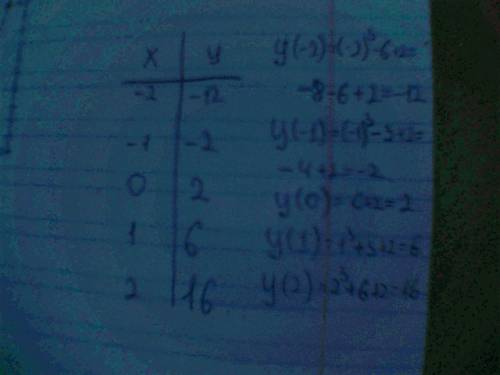 x y
-2 -12
-1 -2
0 2
1 6
2 16
y(-2)=(-2)³-6+2=
-8-6+2=-12
y(-1)=(-1)³-3+2=
-4+2=-2
y(0)=0+2=2
y(1)=1³+3+2=6
y(2)=2³+6+2=16